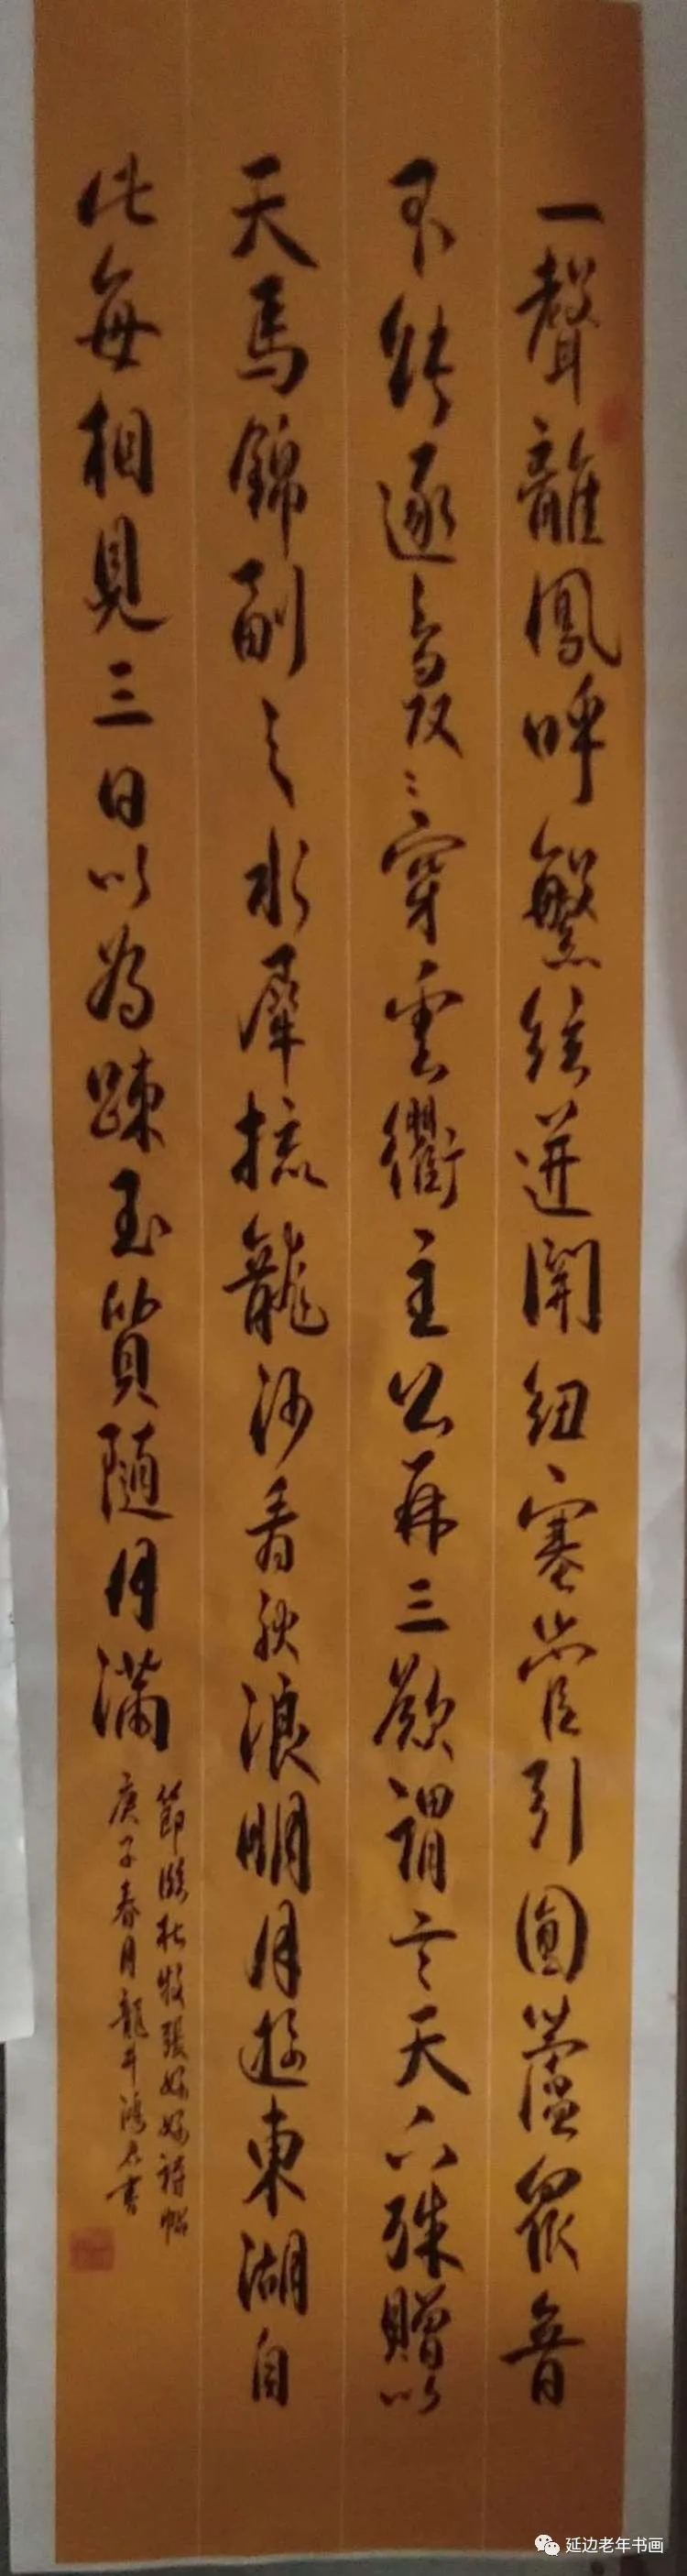 一聲離鳳呼繁絃迸關紐塞管引圓蘆衆音
不能逐裊裊穿雲衢主公再三歎謂言天下殊贈以
天馬錦副之水犀梳龍沙看秋浪明月遊東湖自
此每相見三日以為疎玉質隨月滿
節臨杜牧張好好詩帖
庚子春月龍井鴻君書
延边老年书画